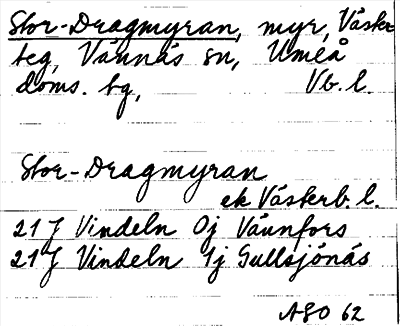 Stor-Dragmyran, myr, Väster-
teg, Vännäs sn, Umeå
doms. tg, Vb. l.
Stor-Dragmyran
ek Västerb. l.
21 J Vindeln 0j Vännfors
21 J Vindeln 1j Gullsjönäs
ASO 62